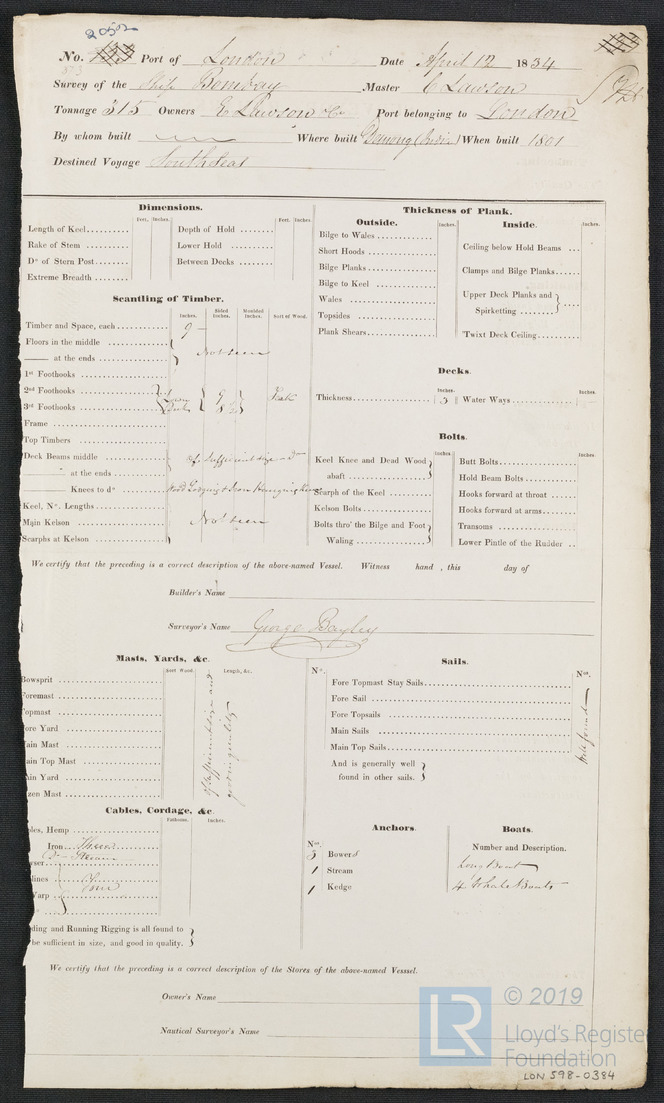 20502
No. Port of London Date April 12 1834
Survey of the Ship Bombay Master E Lawson
Tonnage 315 Owners E Lawson & Co Port belonging to London
By whom built Where built (India) When built 1801
Destined Voyage South Seas
Dimensions.
Feet. Inches. Feet. Inches
Length of Keel.......... Depth of Hold ........
Rake of Stem .......... Lower Hold ........
Do of Stern Post........ Between Decks ........
Extreme Breadth ........
Scantling of Timber.
Inches. Sided Inches. Moulded Inches. Sort of Wood.
Timber and Space, each............ 9
Floors in the middle ............
—— at the ends ............ Not seen
1st Foothooks ................
2nd Foothooks ................
3rd Foothooks ................ 9 Teak
Frame ................
Top Timbers ................
Deck Beams middle ............ of sufficient size Do
" at the ends ............
—— Knees to do Wood Lodging & Iron Hanging Knees
Keel, No. Lengths............
Main Kelson ............ Not seen
Scarphs at Kelson ............
Thickness of Plank.
Outside. Inches. Inside. Inches.
Bilge to Wales ............
Short Hoods ............
Bilge Planks............
Bilge to Keel ............
Wales ............
Topsides ............
Plank Shears............
Ceiling below Hold Beams ...
Clamps and Bilge Planks.....
Upper Deck Planks and
Spirketting ........
'Twixt Deck Ceiling........
Decks.
Inches. Inches.
Thickness................ 3 Water Ways ................
Bolts.
Inches. Inches.
Keel Knee and Dead Wood
abaft ................
Scarph of the Keel ............
Kelson Bolts............
Bolts thro' the Bilge and Foot
Waling ................
Butt Bolts................
Hold Beam Bolts............
Hooks forward at throat ......
Hooks forward at arms........
Transoms ................
Lower Pintle of the Rudder ..
We certify that the preceding is a correct description of the above-named Vessel. Witness hand , this day of
Builder's Name
Surveyor's Name George Bayley
Masts, Yards, &c.
Sort Wood Length, &c.
Bowsprit ................
Foremast ................
Topmast ................
ore Yard ................
ain Mast ................
ain Top Mast ............
ain Yard ................
zen Mast ................
of sufficient size and
good in quality
Sails.
No. Nos.
Fore Topmast Stay Sails............
Fore Sail ................
Fore Topsails ................
Main Sails ................
Main Top Sails................
And is generally well
found in other sails.
Well found
Cables, Cordage, &c.
Fathoms. Inches.
les, Hemp ................
Iron.... Three
Do Stream
wser................
lines ................
Warp ................
ding and Running Rigging is all found to
be sufficient in size, and good in quality.
Anchors.
Nos.
3 Bowers
1 Stream
1 Kedge
Boats.
Number and Description.
Long Boat
4 Whale Boats
We certify that the preceding is a correct description of the Stores of the above-named Vesssel.
Owner's Name
Nautical Surveyor's Name
LR
© 2019
Lloyd's Register
Foundation
LON 598-0384